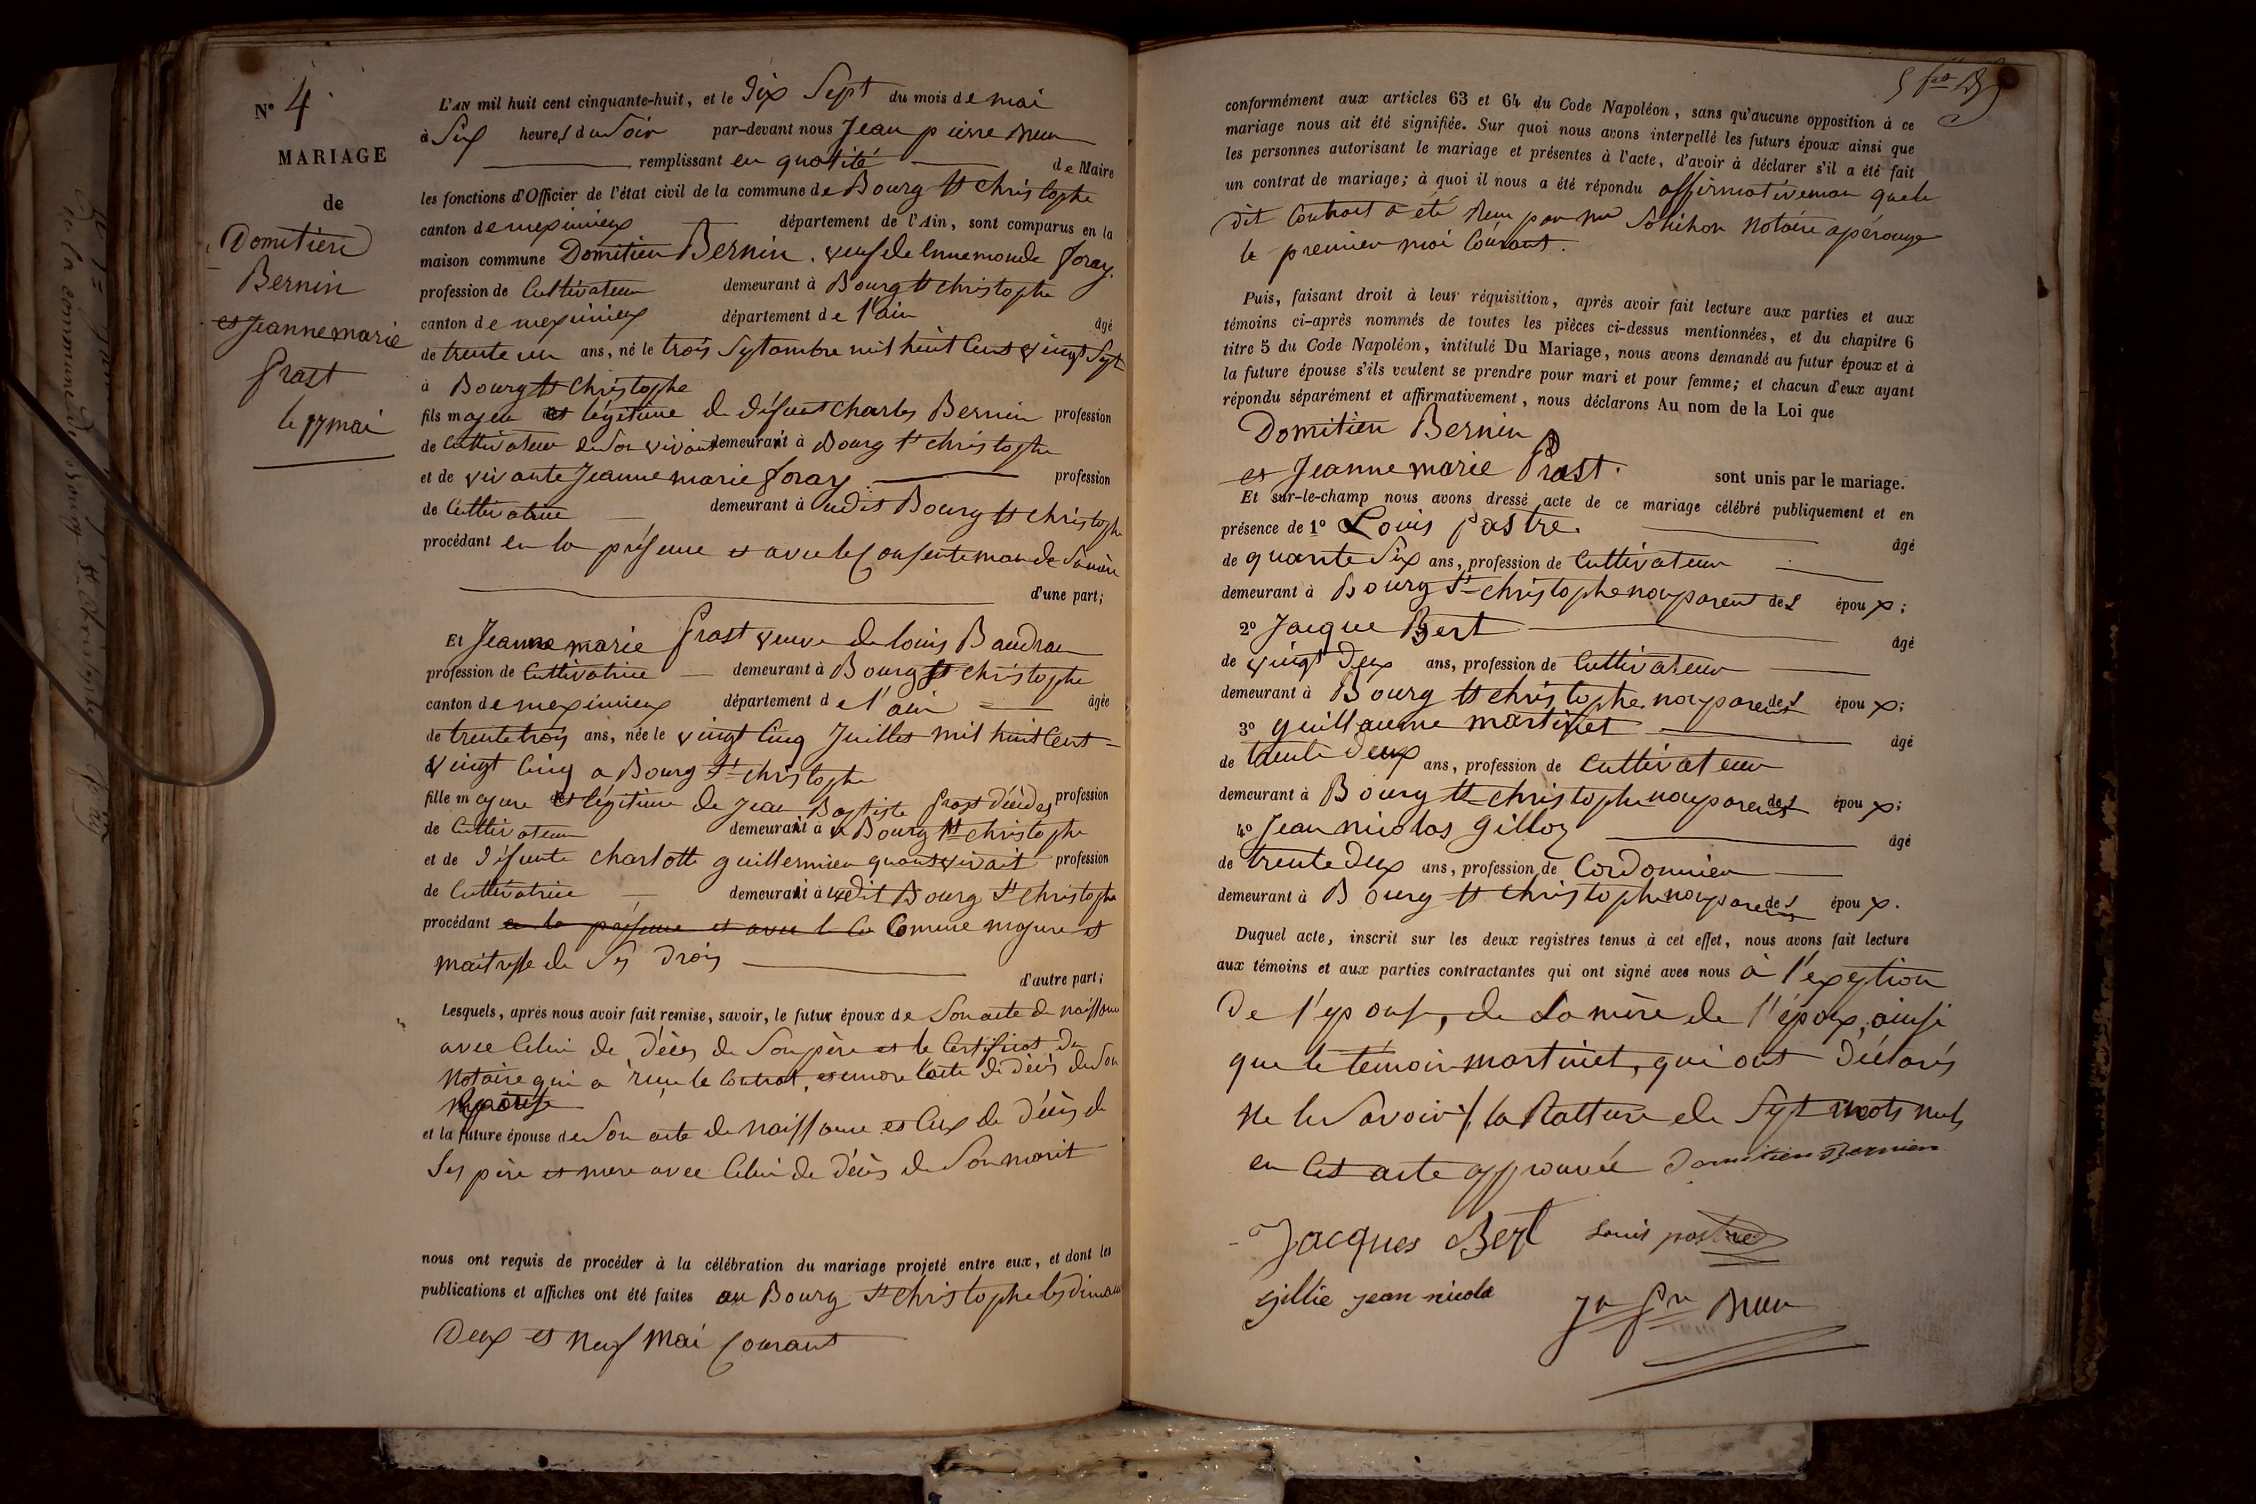 N° 4
MARIAGE
de
Domitien
Bernin
et Jeanne marie
Prost
le 17 mai
L'AN mil huit cent cinquante-huit, et le dix Sept du mois de mai
à Six heures du Soir par-devant nous Jean pierre Brun
remplissant en qualité de Maire
les fonctions d'Officier de l'état civil de la commune de Bourg St christophe
canton de meximieux département de l'Ain, sont comparus en la
maison commune Domitien Bernin, veuf de Ennemonde foray.
profession de Cultivateur demeurant à Bourg St christophe
canton de meximieux département de l'ain âgé
de trente un ans, né le trois Septembre mil huit Cent vingt Sept
à Bourg St Christophe
fils majeur et légitime de défunt charles Bernin profession
de Cultivateur de Son vivant demeurant à Bourg St christophe
et de vivante Jeanne marie foray. profession
de Cultivatrice demeurant à udit Bourg St christophe
procédant en la présence et avec le Consenteman de Samère
d'une part;
Et Jeanne marie Prost veuve de louis Baudran
profession de Cultivatrice demeurant à Bourg St christophe
canton de meximieux département de l'ain âgée
de trente trois ans, née le vingt Cinq Juillet mil huit Cent
vingt Cinq a Bourg St christophe
fille majeure et légitime de Jean Baptiste Prost décédes profession
de Cultivateur demeurant à Bourg St christophe
et de défunte charlotte guillermin quant vivait profession
de Cultivatrice demeurant à udit Bourg St christophe
procédant en la présence et avec le Co Comme majeure et
maitresse de Ses Drois
d'autre part;
Lesquels, après nous avoir fait remise, savoir, le futur époux de Son acte de naissance
avec Celui de décès de Son père et le Certificat du
Notaire qui a reçu le Contrat, et encore l'acte de décès de Son
épouse
et la future épouse de Son acte de naissance et Ceux de décès de
Ses père et mere avec Celui de décès de Son marit
nous ont requis de procéder à la célébration du mariage projeté entre eux, et dont les
publications et affiches ont été faites au Bourg St christophe les dimanches
Deux et neuf mai Courant
conformément aux articles 63 et 64 du Code Napoléon, sans qu'aucune opposition à ce
mariage nous ait été signifiée. Sur quoi nous avons interpellé les futurs époux ainsi que
les personnes autorisant le mariage et présentes à l'acte, d'avoir à déclarer s'il a été fait
un contrat de mariage; à quoi il nous a été répondu affirmativeman que le
dit Contrat a été Reçu par Me Notaire apérouge
le premier mai Courant.
Puis, faisant droit à leur réquisition, après avoir fait lecture aux parties et aux
témoins ci-après nommés de toutes les pièces ci-dessus mentionnées, et du chapitre 6
titre 5 du Code Napoléon, intitulé Du Mariage, nous avons demandé au futur époux et à
la future épouse s'ils veulent se prendre pour mari et pour femme; et chacun d'eux ayant
répondu séparément et affirmativement, nous déclarons Au nom de la Loi que
Domitien Bernin
et Jeanne marie Prost. sont unis par le mariage.
Et sur-le-champ nous avons dressé acte de ce mariage célébré publiquement et en
présence de 1° Louis pastre. âgé
de quarante Six ans, profession de Cultivateur
demeurant à Bourg St christophe nonparent des époux;
2° Jacque Bert âgé
de vingt Deux ans, profession de Cultivateur
demeurant à Bourg St christophe nonparent des époux;
3° guillaume martinet âgé
de trente Deux ans, profession de Cultivateur
demeurant à Bourg St christophe nonparent des époux;
4° Jean nicolas Gilloz âgé
de trente Deux ans, profession de Cordonnier
demeurant à Bourg St christophe nonparent des époux.
Duquel acte, inscrit sur les deux registres tenus à cet effet, nous avons fait lecture
aux témoins et aux parties contractantes qui ont signé avec nous à l'exeption
de l'épouse, de la mère de l'époux, ainsi
que le témoin martinet, qui ont déclarés
ne le Savoir/. la Rature de Sept mots nuls
en Cet acte approuvée Domitien Bernien
Jacques Bert Louis pastre
Gillie jean nicola Jn Pre Brun